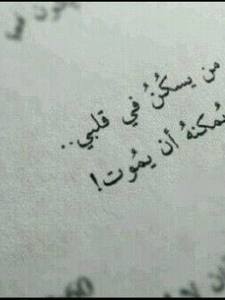 من يسكُنُ في قلبي..
يُمكنهُ أن يمُوت!